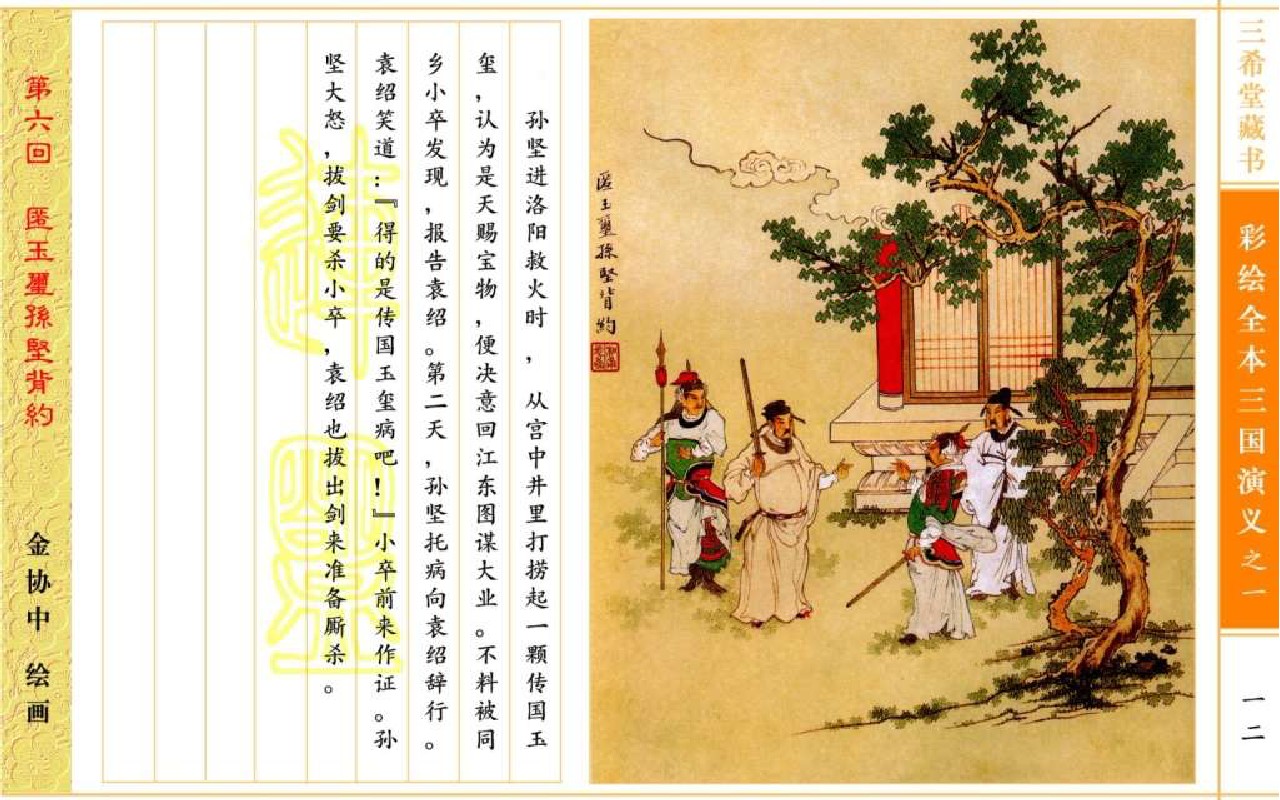 三希堂藏书
彩绘全本三国演义之一
一二
匿玉璽孫堅背約
孙坚进洛阳救火时，从宫中井里打捞起一颗传国玉
玺，认为是天赐宝物，便决意回江东图谋大业。不料被同
乡小卒发现，报告袁绍。第二天，孙坚托病向袁绍辞行。
袁绍笑道：『得的是传国玉玺病吧！』小卒前来作证。孙
坚大怒，拔剑要杀小卒，袁绍也拔出剑来准备厮杀。
第六回 匿玉璽孫堅背約
金协中 绘画